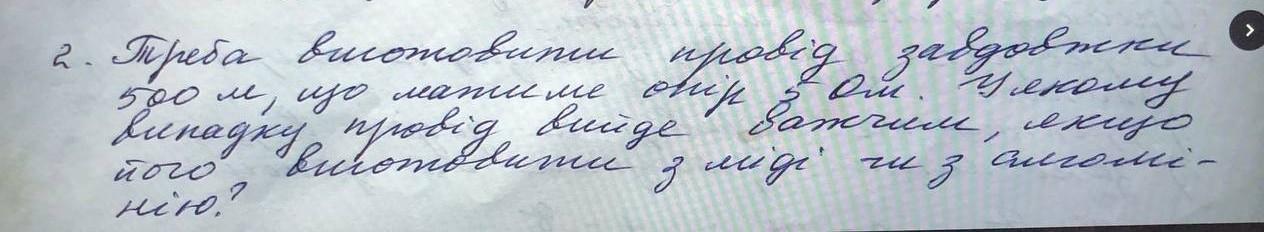 2. Треба виготовити провід завдовжки
500 м, що матиме опір 5 Ом. У якому
випадку провід вийде важчим, якщо
його виготовити з міді чи з алюмі-
нію?